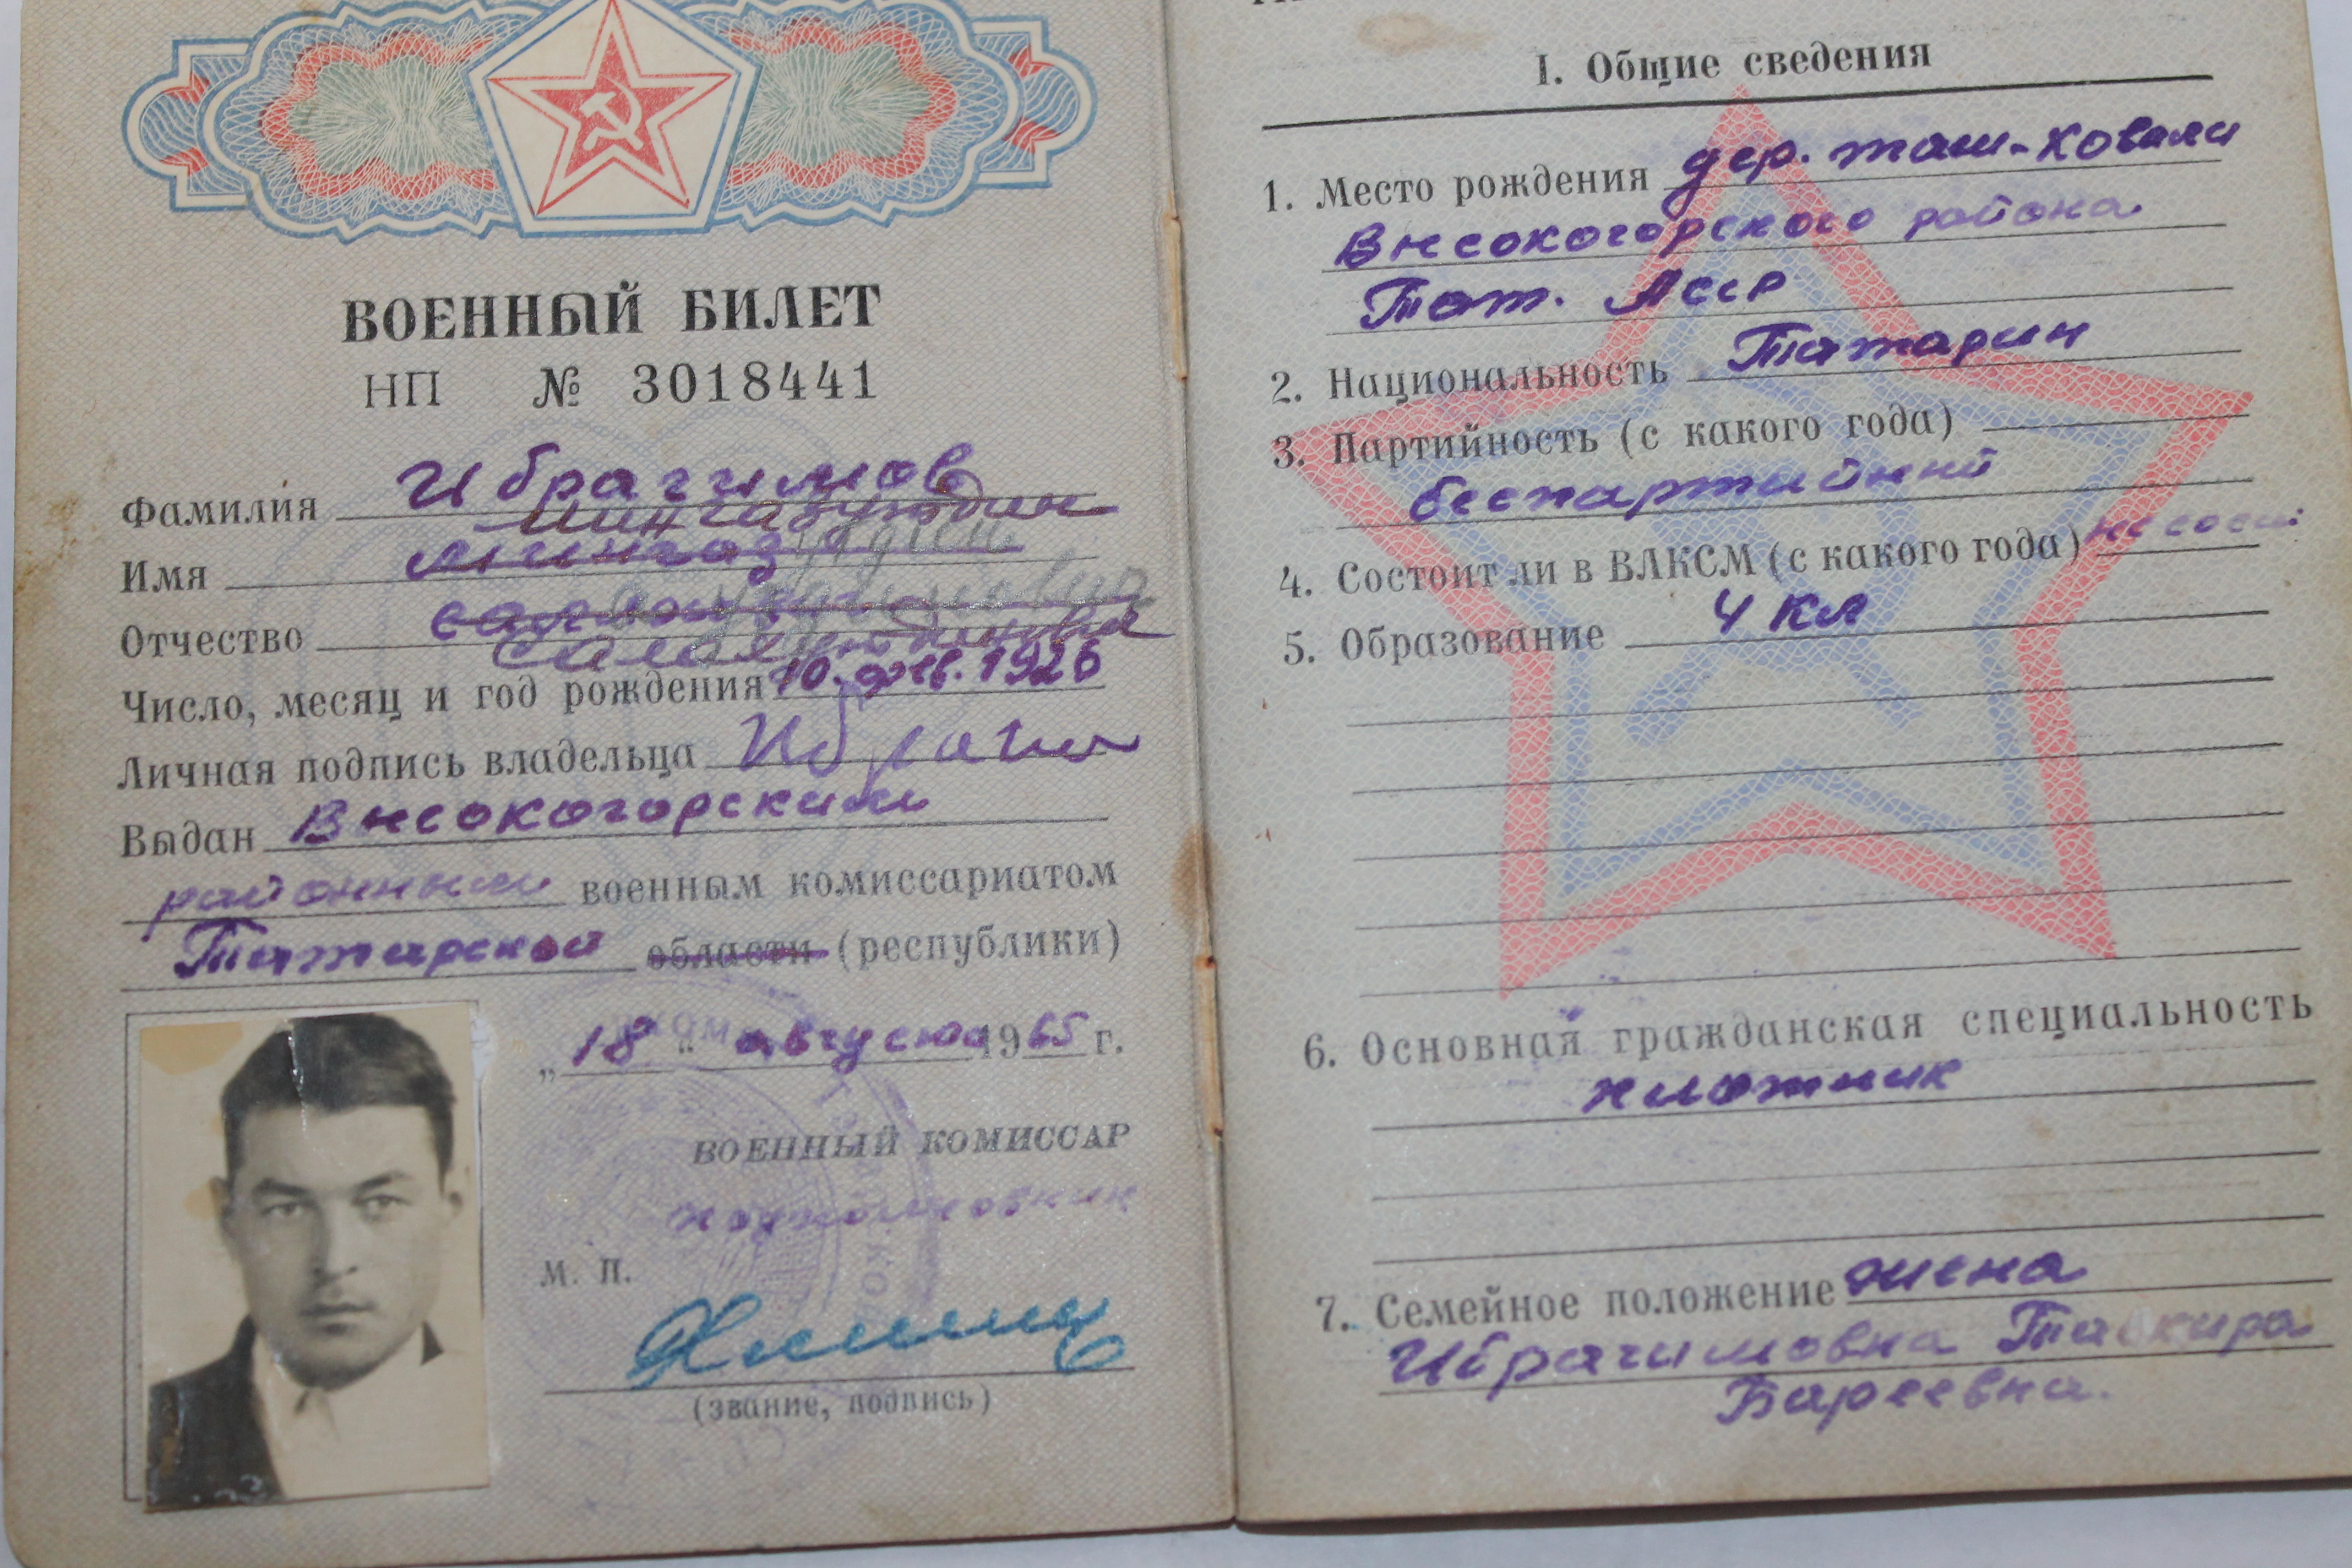 ВОЕННЫЙ БИЛЕТ
НП № 3018441
Фамилия Ибрагимов
Мингазутдин
Имя
Отчество
Салахутдинович
Число, месяц и год рождения 10. фев. 1926
Личная подпись владельца Ибраги
Выдан Высокогорским
районным военным комиссариатом
Татарской области (республики)
„ 18 " августа 1965 г.
ВОЕННЫЙ КОМИССАР
подполковник
М. П.
(звание, подпись)
I. Общие сведения
1. Место рождения дер. Таш-Ковали
Высокогорского района
Тат. Асср
2. Национальность Татарин
3. Партийность (с какого года)
беспартийный
4. Состоит ли в ВЛКСМ (с какого года) не сост.
5. Образование 4 кл
6. Основная гражданская специальность
плотник
7. Семейное положение жена
Ибрагимовна
Бареевна.